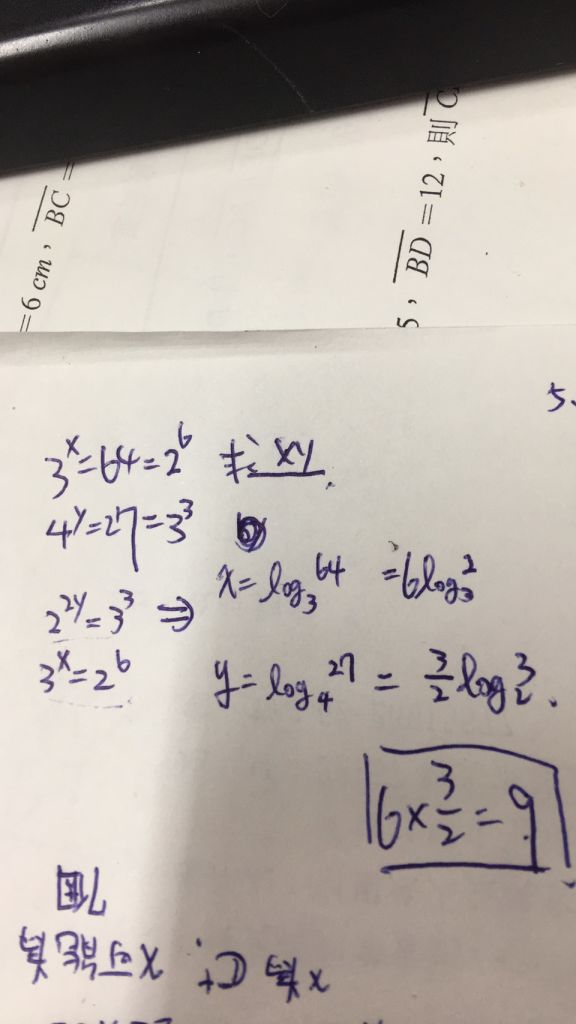 =6 cm，BC =
5，BD =12，則 C
5.
3^x=64=2^6 求 xy.
4^y=27=3^3
x=log_3 64 =6log_3 2
2^{2y}=3^3 ⇒
3^x=2^6 y=log_4 27 = 3/2 log_2 3.
6×3/2=9
7個
x為 C+, x可能為